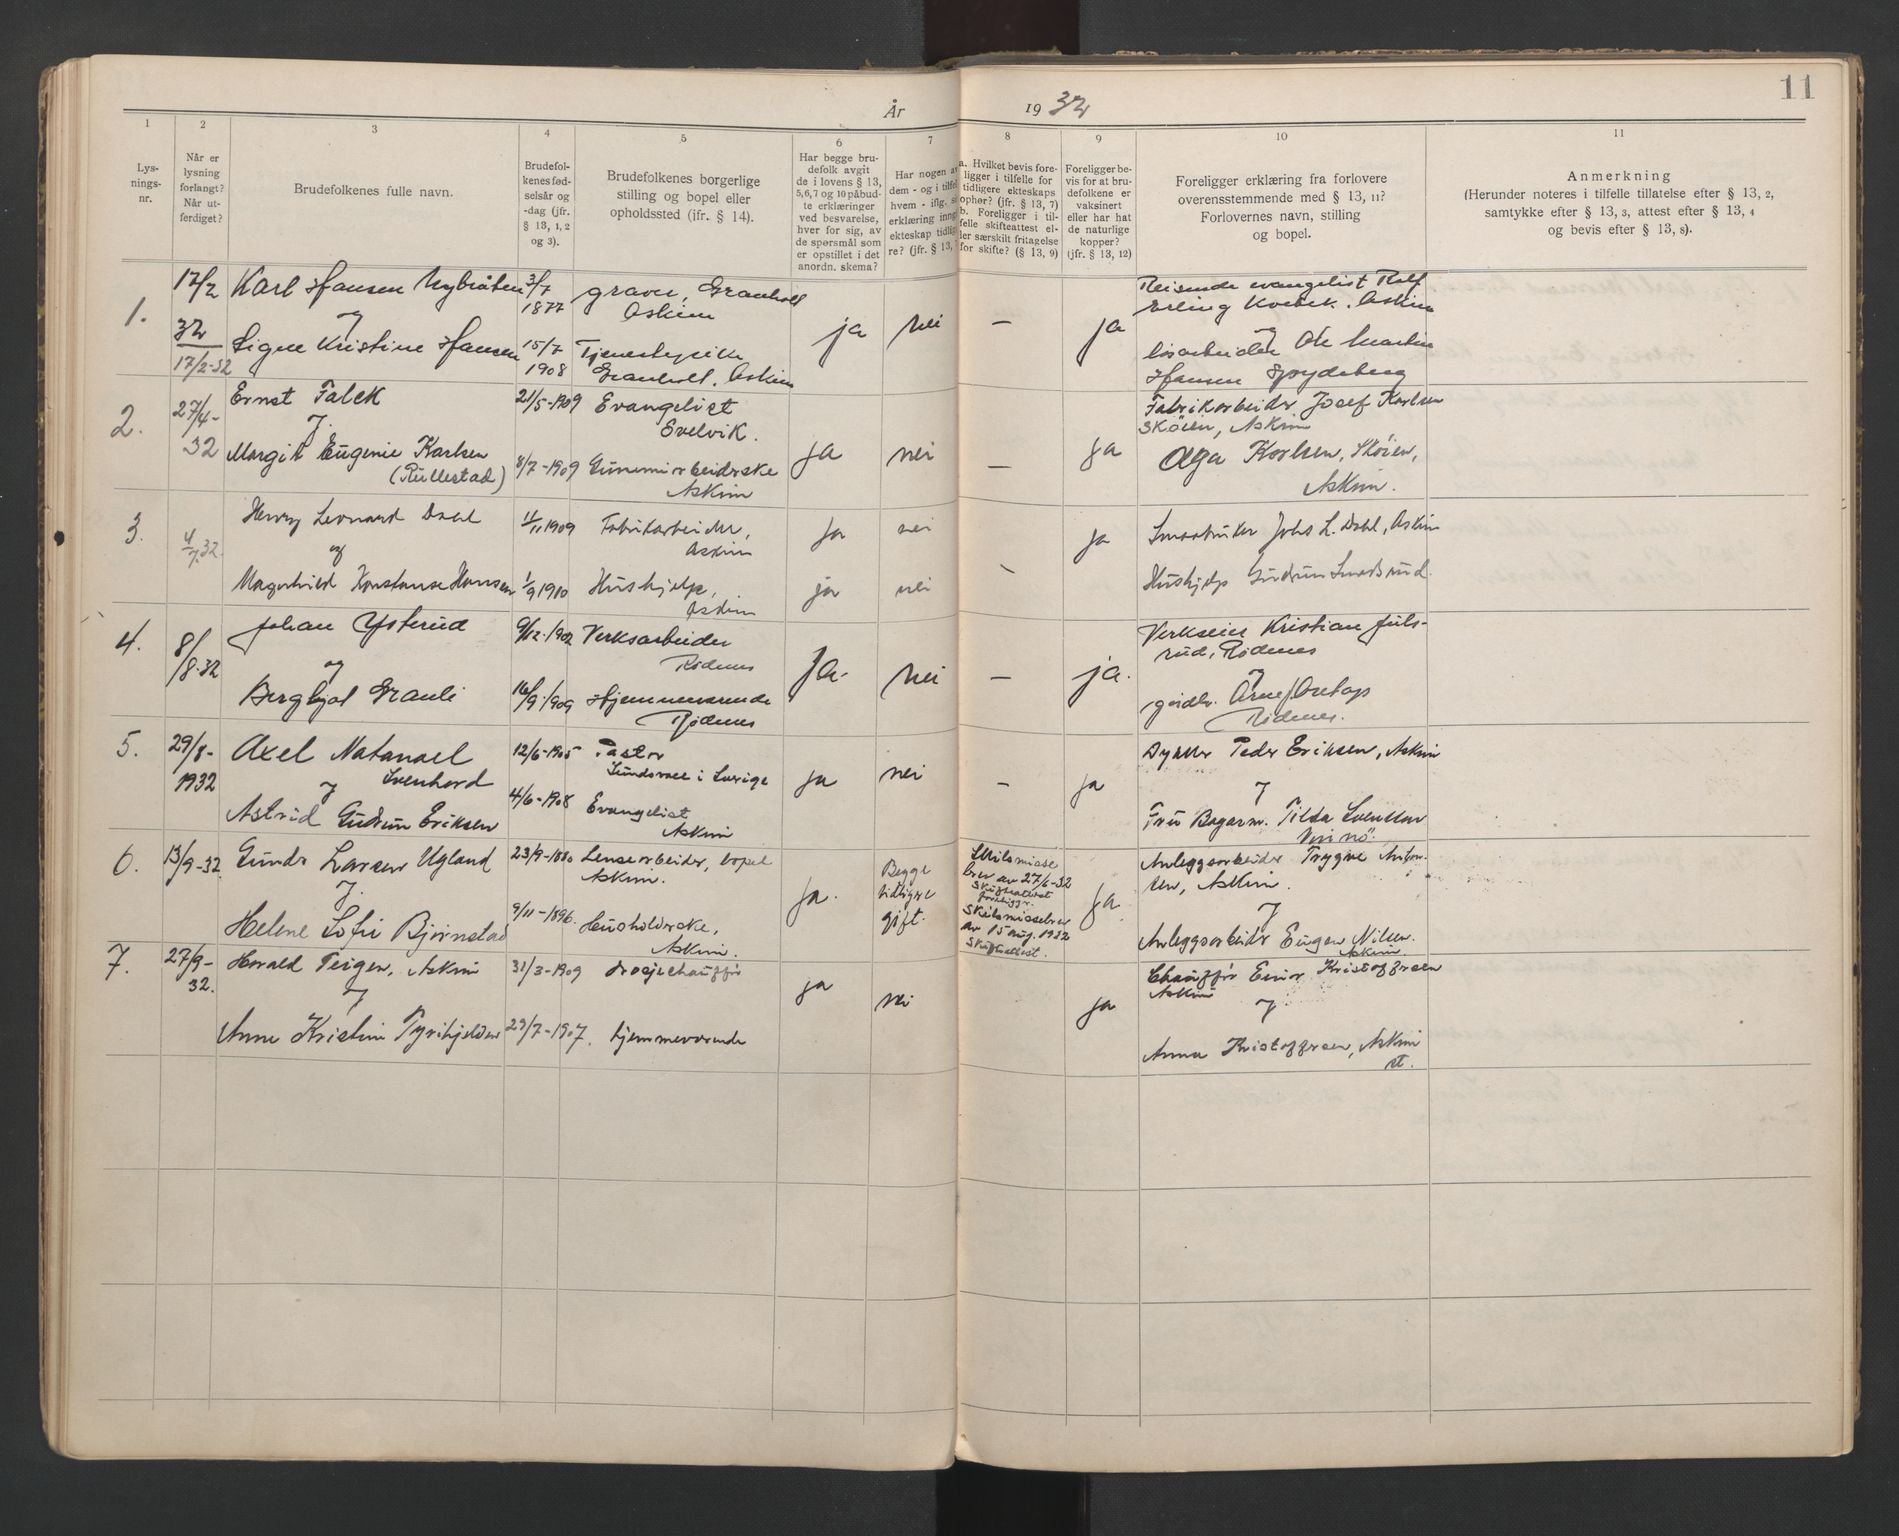 11
År
19 32
1
2
3
4
5
6
7
8
9
10
11
Lys-
nings-
nr.
Når er
lysning
forlangt?
Når ut-
ferdiget?
Brudefolkenes fulle navn.
Brudefol-
kenes fød-
selsår og
-dag (jfr.
§ 13, 1, 2
og 3).
Brudefolkenes borgerlige
stilling og bopel eller
opholdssted (ifr. § 14).
Har begge bru-
defolk avgit
de i lovens § 13,
5,6,7 og 10 påbud-
te erklæringer
ved besvarelse,
hver for sig, av
de spørsmål som
er opstillet i det
anordn. skema?
Har nogen av
dem - og i tilfel
hvem - iflg. s
erklæring inng
ekteskap tidlig
re? (jfr. § 13,
a. Hvilket bevis fore-
ligger i tilfelle for
tidligere ekteskaps
ophør? (jfr. § 13, 7)
b. Foreligger i til-
felle skifteattest el-
ler særskilt fritagelse
for skifte? (§ 13, 9)
Foreligger be-
vis for at bru-
defolkene er
vaksinert
eller har hat
de naturlige
kopper?
(jfr. § 13, 12)
Foreligger erklæring fra forlovere
overensstemmende med § 13, 11?
Forlovernes navn, stilling
og bopel.
Anmerkning
(Herunder noteres i tilfelle tillatelse efter § 13, 2,
samtykke efter § 13, 3, attest efter § 13, 4
og bevis efter § 13, 8).
1.
17/2
32
17/2-32
Karl Hansen Nybråten
og
Signe Kristine Hansen
3/7
1877
15/7
1908
graver, Granholt
Askim
Tjenestepike
Granholt. Askim
ja
nei
–
ja
Reisende evangelist Rolf
Erling Kvebek. Askim
og
løsarbeider Ole Martin
Hansen Spydeberg
2.
27/4-
32
Ernst Falck
og
Margit Eugenie Karlsen
(Rullestad)
21/5-1909
8/7-1909
Evangelist
Svelvik.
Gummiarbeiderske
Askim
ja
nei
–
ja
Fabrikarbeider Josef Karlsen
Skøien, Askim
Aga Karlsen, Skøien,
Askim.
3.
4/7.32.
Henry Leonard Dahl
og
Magnhild Konstanse Hansen
11/11 1909
1/9 1910
Fabrikarbeider,
Askim
Hushjelp,
Askim
ja
nei
ja
nei
–
ja
Småbruker Johs L. Dahl, Askim
Hushjelp Gudrun Smedsrud.
4.
8/8.32
Johan Ysterud
og
Bergljot Grauli
9/12.1902
16/9.1909
Verksarbeider
Rødenes
Hjemmeværende
Rødenes
ja.
nei
–
ja.
Verkseier Kristian Juls-
rud, Rødenes
og
gårdbr. Arne
Rødenes.
5.
29/8-
1932
Axel Natanael
Svenhard
og
Astrid Gudrun Eriksen
12/6-1905
4/6-1908
Pastor
Sundsvall i Sverige
Evangelist
Askim
ja
nei
–
ja
Dykker Peder Eriksen, Askim
og
Fru Bagarm. Tilda Svensson
6.
13/9-32.
Gunder Larsen Ugland
og
Helene Sofie Bjørnstad
23/9-1880
9/11-1896.
Lensearbeider, bopel
Askim.
Husholderske,
Askim.
ja.
Begge
tidligere
gift.
Skilsmisse
brev av 27/6-32
Skifteattest
foreligger.
Skilsmissebrev
av 15 aug. 1932
Skifteattest.
ja
Anleggsarbeider Trygve Anton-
sen, Askim.
og
Anleggsarbeider Eugen Nilsen.
Askim.
7.
27/9-
32.
Harald Teigen, Askim
og
Anne Kristine Tyrihjelden
31/3-1909
29/7-1907.
drosjechauffør
hjemmeværende
ja
nei
ja
Chauffør Einar Kristoffersen
Askim
og
Anna Kristoffersen, Askim
st.